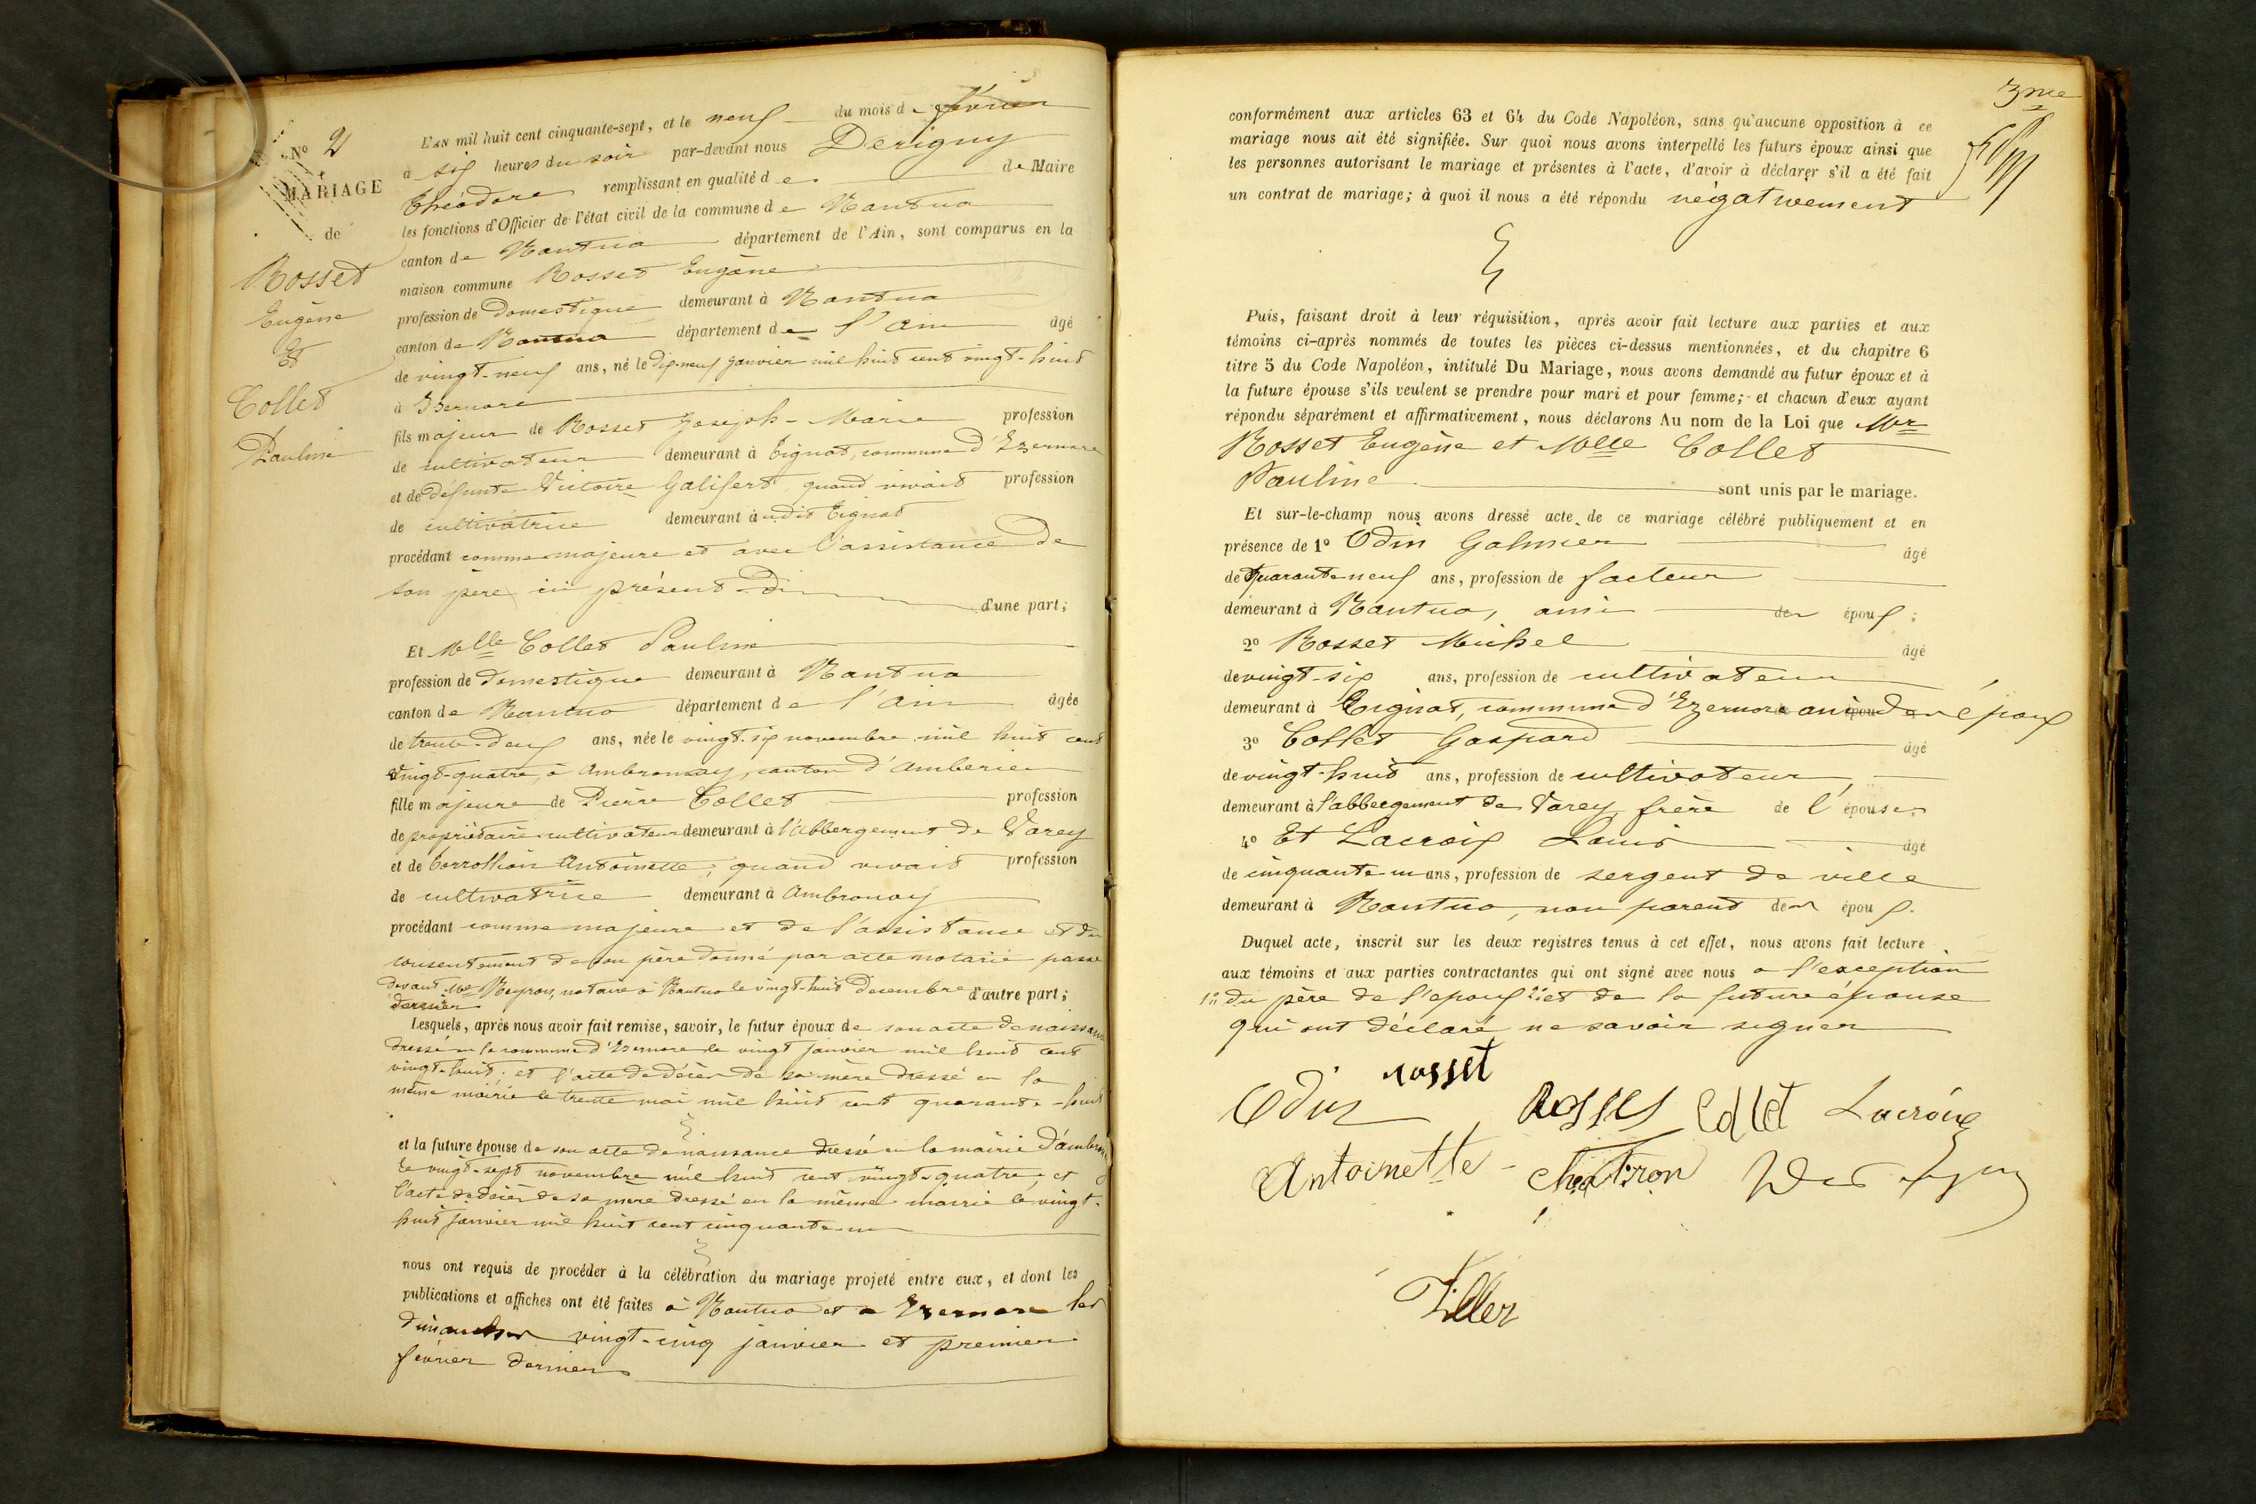 N° 2
MARIAGE
de
Rosset
Eugène
Et
Collet
Pauline
L'AN mil huit cent cinquante-sept, et le neuf du mois de février
à six heures du soir par-devant nous Derigny
Théodore remplissant en qualité de de Maire
les fonctions d'Officier de l'état civil de la commune de Nantua
canton de Nantua département de l'Ain, sont comparus en la
maison commune Rosset Eugène
profession de domestique demeurant à Nantua
canton de Nantua département de l'Ain âgé
de vingt-neuf ans, né le dix-neuf janvier mil huit cent vingt-huit
à Izernore
fils majeur de Rosset Joseph-Marie profession
de cultivateur demeurant à Tignat, commune d'Izernore
et de défunte Victoire Galifert quand vivait profession
de cultivatrice demeurant audit Tignat
procédant comme majeure et avec l'assistance de
son père ici présent d'une part;
Et Melle Collet Pauline
profession de domestique demeurant à Nantua
canton de Nantua département de l'Ain âgée
de trente-deux ans, née le vingt-six novembre mil huit cent
vingt-quatre, à Ambronay, canton d'Ambérieu
fille majeure de Pierre Collet profession
de propriétaire cultivateur demeurant à l'abbergement de Varey
et de Antoinette, quand vivait profession
de cultivatrice demeurant à Ambronay
procédant comme majeure et de l'assistance et du
consentement de son père donné par acte notarié passé
devant Me notaire à Nantua le vingt-huit decembre d'autre part;
dernier
Lesquels, après nous avoir fait remise, savoir, le futur époux de son acte de naissance
dressé en la commune d'Izernore le vingt janvier mil huit cent
vingt-huit; et l'acte de décès de sa mère dressé en la
même mairie le trente mai mil huit cent quarante-huit
et la future épouse de son acte de naissance dressé en la mairie d'Ambronay
le vingt-sept novembre mil huit cent vingt-quatre; et
l'acte de décès de sa mère dressé en la même mairie le vingt-
huit janvier mil huit cent cinquante-un
nous ont requis de procéder à la célébration du mariage projeté entre eux, et dont les
publications et affiches ont été faites à Nantua et à Izernore les
dimanches vingt-cinq janvier et premier
février dernier
3me
conformément aux articles 63 et 64 du Code Napoléon, sans qu'aucune opposition à ce
mariage nous ait été signifiée. Sur quoi nous avons interpellé les futurs époux ainsi que
les personnes autorisant le mariage et présentes à l'acte, d'avoir à déclarer s'il a été fait
un contrat de mariage; à quoi il nous a été répondu négativement
Puis, faisant droit à leur réquisition, après avoir fait lecture aux parties et aux
témoins ci-après nommés de toutes les pièces ci-dessus mentionnées, et du chapitre 6
titre 5 du Code Napoléon, intitulé Du Mariage, nous avons demandé au futur époux et à
la future épouse s'ils veulent se prendre pour mari et pour femme; et chacun d'eux ayant
répondu séparément et affirmativement, nous déclarons Au nom de la Loi que Mr
Rosset Eugène et Melle Collet
Pauline sont unis par le mariage.
Et sur-le-champ nous avons dressé acte de ce mariage célébré publiquement et en
présence de 1° Odin Galmier âgé
de quarante neuf ans, profession de facteur
demeurant à Nantua, ami des époux;
2° Rosset Michel âgé
de vingt-six ans, profession de cultivateur
demeurant à Tignat, commune d'Izernore ami des époux
3° Collet Gaspard âgé
de vingt-huit ans, profession de cultivateur
demeurant à l'abbergement de Varey frère de l'épouse;
4° Et Lacroix Louis âgé
de cinquante-un ans, profession de sergent de ville
demeurant à Nantua, non parent des époux.
Duquel acte, inscrit sur les deux registres tenus à cet effet, nous avons fait lecture
aux témoins et aux parties contractantes qui ont signé avec nous à l'exception
1° du père de l'époux 2° et de la future épouse
qui ont déclaré ne savoir signer
Odin Rosset Rosset Collet Lacroix
Antoinette Chatron Derigny
Tiller